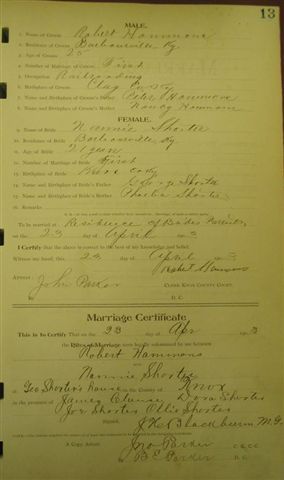 13
MALE.
1. Name of Groom Robert Hammons
2. Residence of Groom Barbourville Ky
3. Age of Groom 25
4. Number of Marriage of Groom First
5. Occupation Railroading
6. Birthplace of Groom Clay Co Ky
7. Name and Birthplace of Groom's Father Peter Hammons
8. Name and Birthplace of Groom's Mother Nancy Hammons
FEMALE.
9. Name of Bride Nannie Shorter
10. Residence of Bride Barbourville Ky
11. Age of Bride 21 years
12. Number of Marriage of Bride First
13. Birthplace of Bride Knox Co Ky
14. Name and Birthplace of Bride's Father George Shorter
15. Name and Birthplace of Bride's Mother Shorter
16. Remarks
To be married at Residence of Brides Parents
on the 23 day of April 3
I Certify that the above is correct to the best of my knowledge and belief.
Witness my hand, this 23 day of April 3
Robert Hammons
Attest:
John Parker CLERK KNOX COUNTY COURT.
By D. C.
Marriage Certificate
This is to Certify That on the 23 day of Apr 3
the Rites of Marriage were legally solemnized by me between
Robert Hammons
and
Nannie Shorter
at Geo Shorter's house in the County of Knox
in the presence of James Dora Shorter
Joe Shorter Ollie Shorter
Signed, Blackburn M.G.
A Copy. Attest: Jno Parker CKCC
By B E Parker D.C.